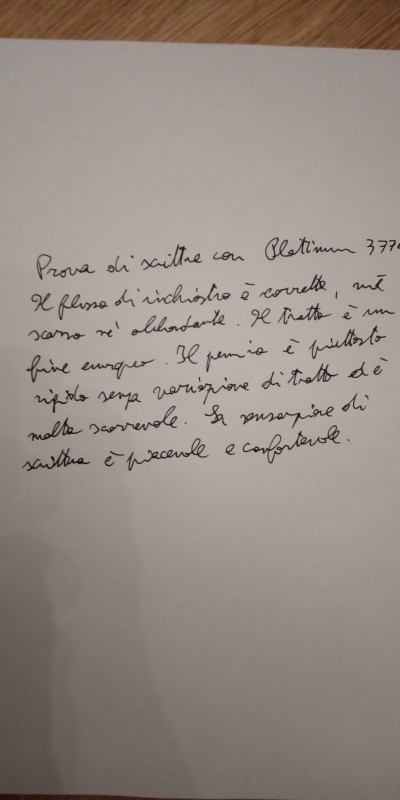 Prova di scrittura con Platinum 3776
Il flusso di inchiostro è corretto, né
scarso né abbondante. Il tratto è un
fine europeo. Il pennino è piuttosto
rigido senza variazione di tratto ed è
molto scorrevole. La sensazione di
scrittura è piacevole e confortevole.